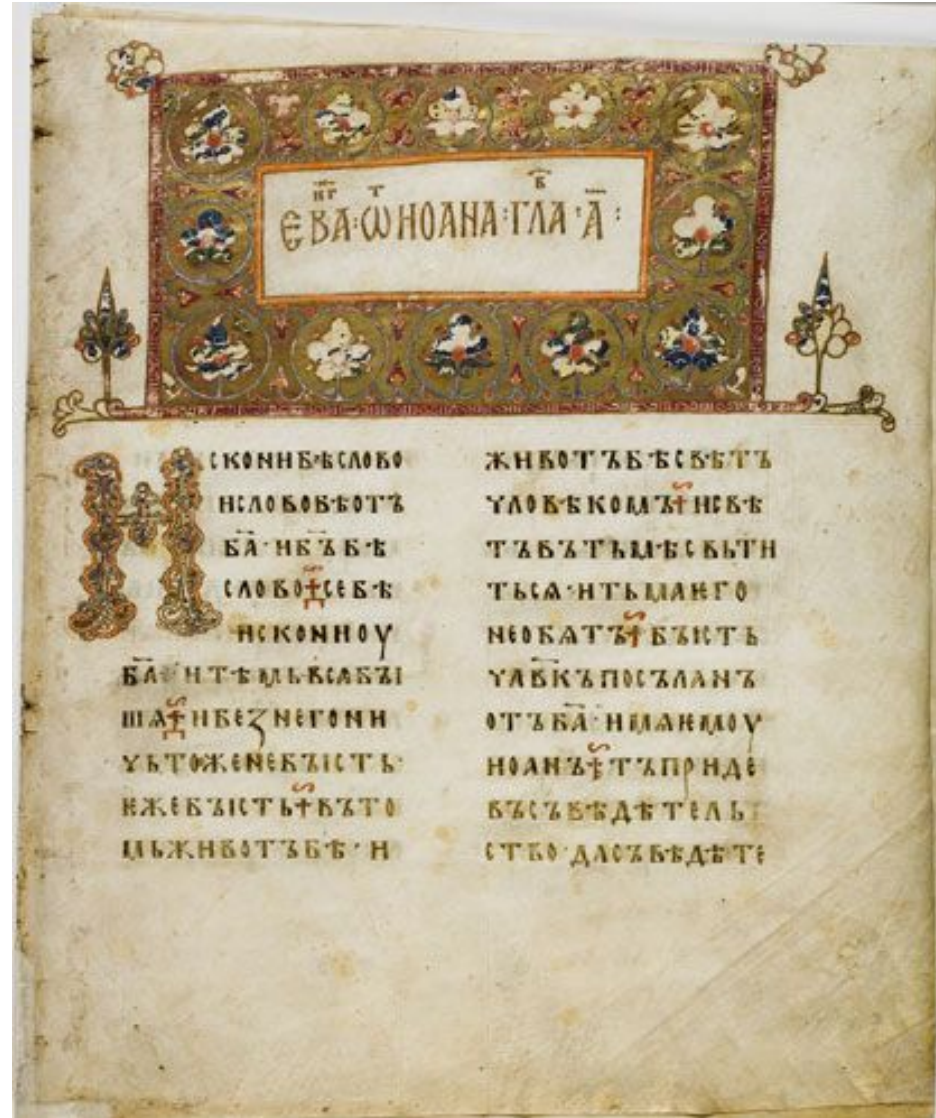 ЕВА҃НГ · Ѿ ИОАНА · ГЛАВ · А҃ :
ИСКОНИ БѢ СЛОВО
И СЛОВО БѢ ОТЪ
БА҃ · И БЪ҃ БѢ
СЛОВО СЕ БѢ
ИСКОНИ ОУ
БА҃ · И ТѢМЬ ВСѦ БꙐ
ШѦ И БЕЗ НЕГО НИ
ЧЬТОЖЕ НЕ БꙐСТЬ ·
ѤЖЕ БꙐСТЬ ВЪ ТО
МЬ ЖИВОТЪ БѢ · И
ЖИВОТЪ БѢ СВѢТЪ
ЧЛОВѢКОМЪ И СВѢ
ТЪ ВЪ ТЬМѢ СВЬТИ
ТЬСѦ · И ТЬМА ѤГО
НЕ ОБѦТЪ БꙐСТЬ
ЧЛ҃ВКЪ ПОСЪЛАНЪ
ОТЪ БА҃ · ИМѦ ѤМОУ
ИОАНЪ ТЪ ПРИДЕ
ВЪ СЪВѢДѢТЕЛЬ
СТВО · ДА СЪВѢДѢТЕ